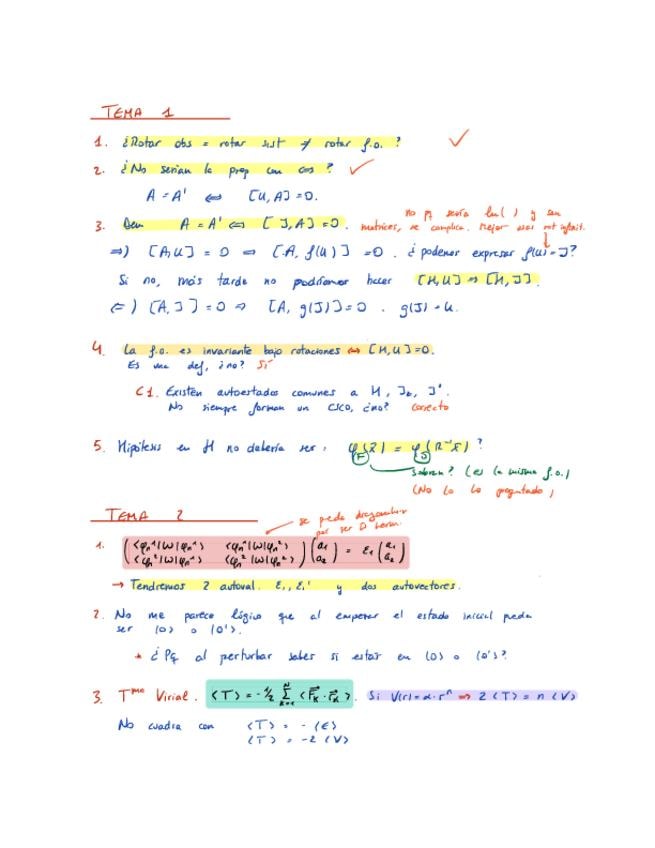 TEMA 1
1. ¿Rotar obs = rotar sist ≠ rotar f.o.?
2. ¿No serían la prop con cos?
A = A' ⇔ [U, A] = 0.
no pq sería ln( ) y son
3. Dem A = A' ⇔ [J, A] = 0. matrices, se complica. Mejor usar rot infinit.
⇒) [A, U] = 0 ⇒ [A, f(U)] = 0. ¿podemos expresar f(U) = J?
Si no, más tarde no podríamos hacer [H, U] ⇒ [H, J].
⇐) [A, J] = 0 ⇒ [A, g(J)] = 0. g(J) = U.
4. La f.o. es invariante bajo rotaciones ⇔ [H, U] = 0.
Es una def, ¿no? Sí
C1. Existen autoestados comunes a H, Jz, J².
No siempre forman un CSCO, ¿no? Correcto
5. Hipótesis en H no debería ser: φ(x⃗) = φ(R⁻¹x⃗)?
Sobran? (es la misma f.o.)
(No lo he preguntado)
TEMA 2
se puede diagonalizar
por ser D herm.
1. (⟨φn¹|W|φn¹⟩ ⟨φn¹|W|φn²⟩) (a₁) = ε₁ (a₁)
(⟨φn²|W|φn¹⟩ ⟨φn²|W|φn²⟩) (a₂) (a₂)
→ Tendremos 2 autoval. ε₁, ε₁' y dos autovectores.
2. No me parece lógico que al empezar el estado inicial pueda
ser |0⟩ o |0'⟩.
* ¿Pq al perturbar sabes si estás en |0⟩ o |0'⟩?
3. Tma Virial. ⟨T⟩ = -1/2 Σ_{k=1}^{N} ⟨F⃗k · r⃗k⟩. Si V(r) = α·rⁿ ⇒ 2⟨T⟩ = n⟨V⟩
No cuadra con ⟨T⟩ = -⟨E⟩
⟨T⟩ = -2⟨V⟩